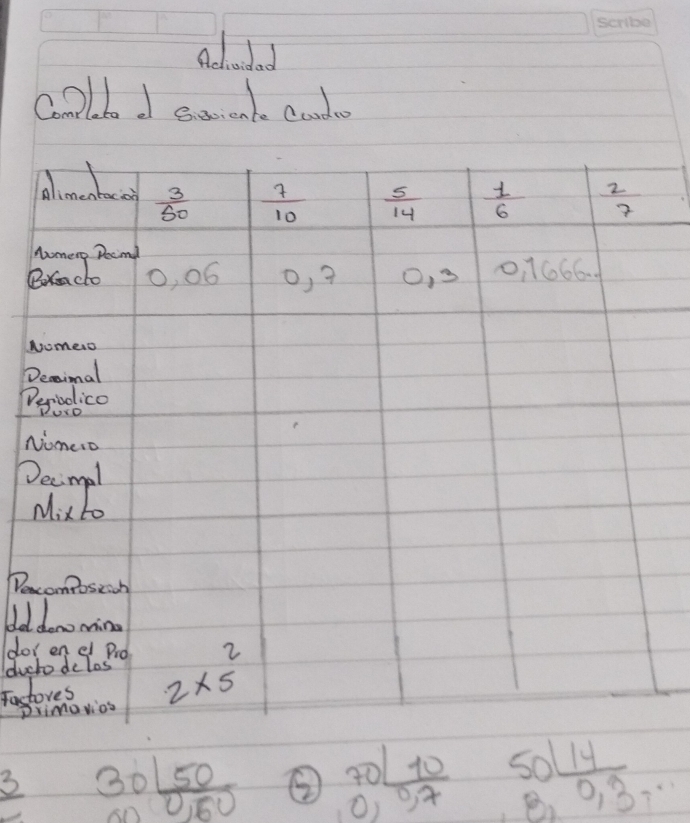 Scribe
Actividad
Completa el siguiente Cuadro
Alimentacion 3/50 7/10 5/14 1/6 2/7
Numero Decimal
Exsacto 0,06 0,7 0,3 0,1666...
Numero
Decimal
Periodico
Puro
Numero
Decimal
Mixto
Descomposicion
del denomina
dor en el Pro
ducto de los 2
Factores 2x5
Primarios
3 30 50 0,60 00
② 70 10 0,7 0,
50 14 0,3... 8,